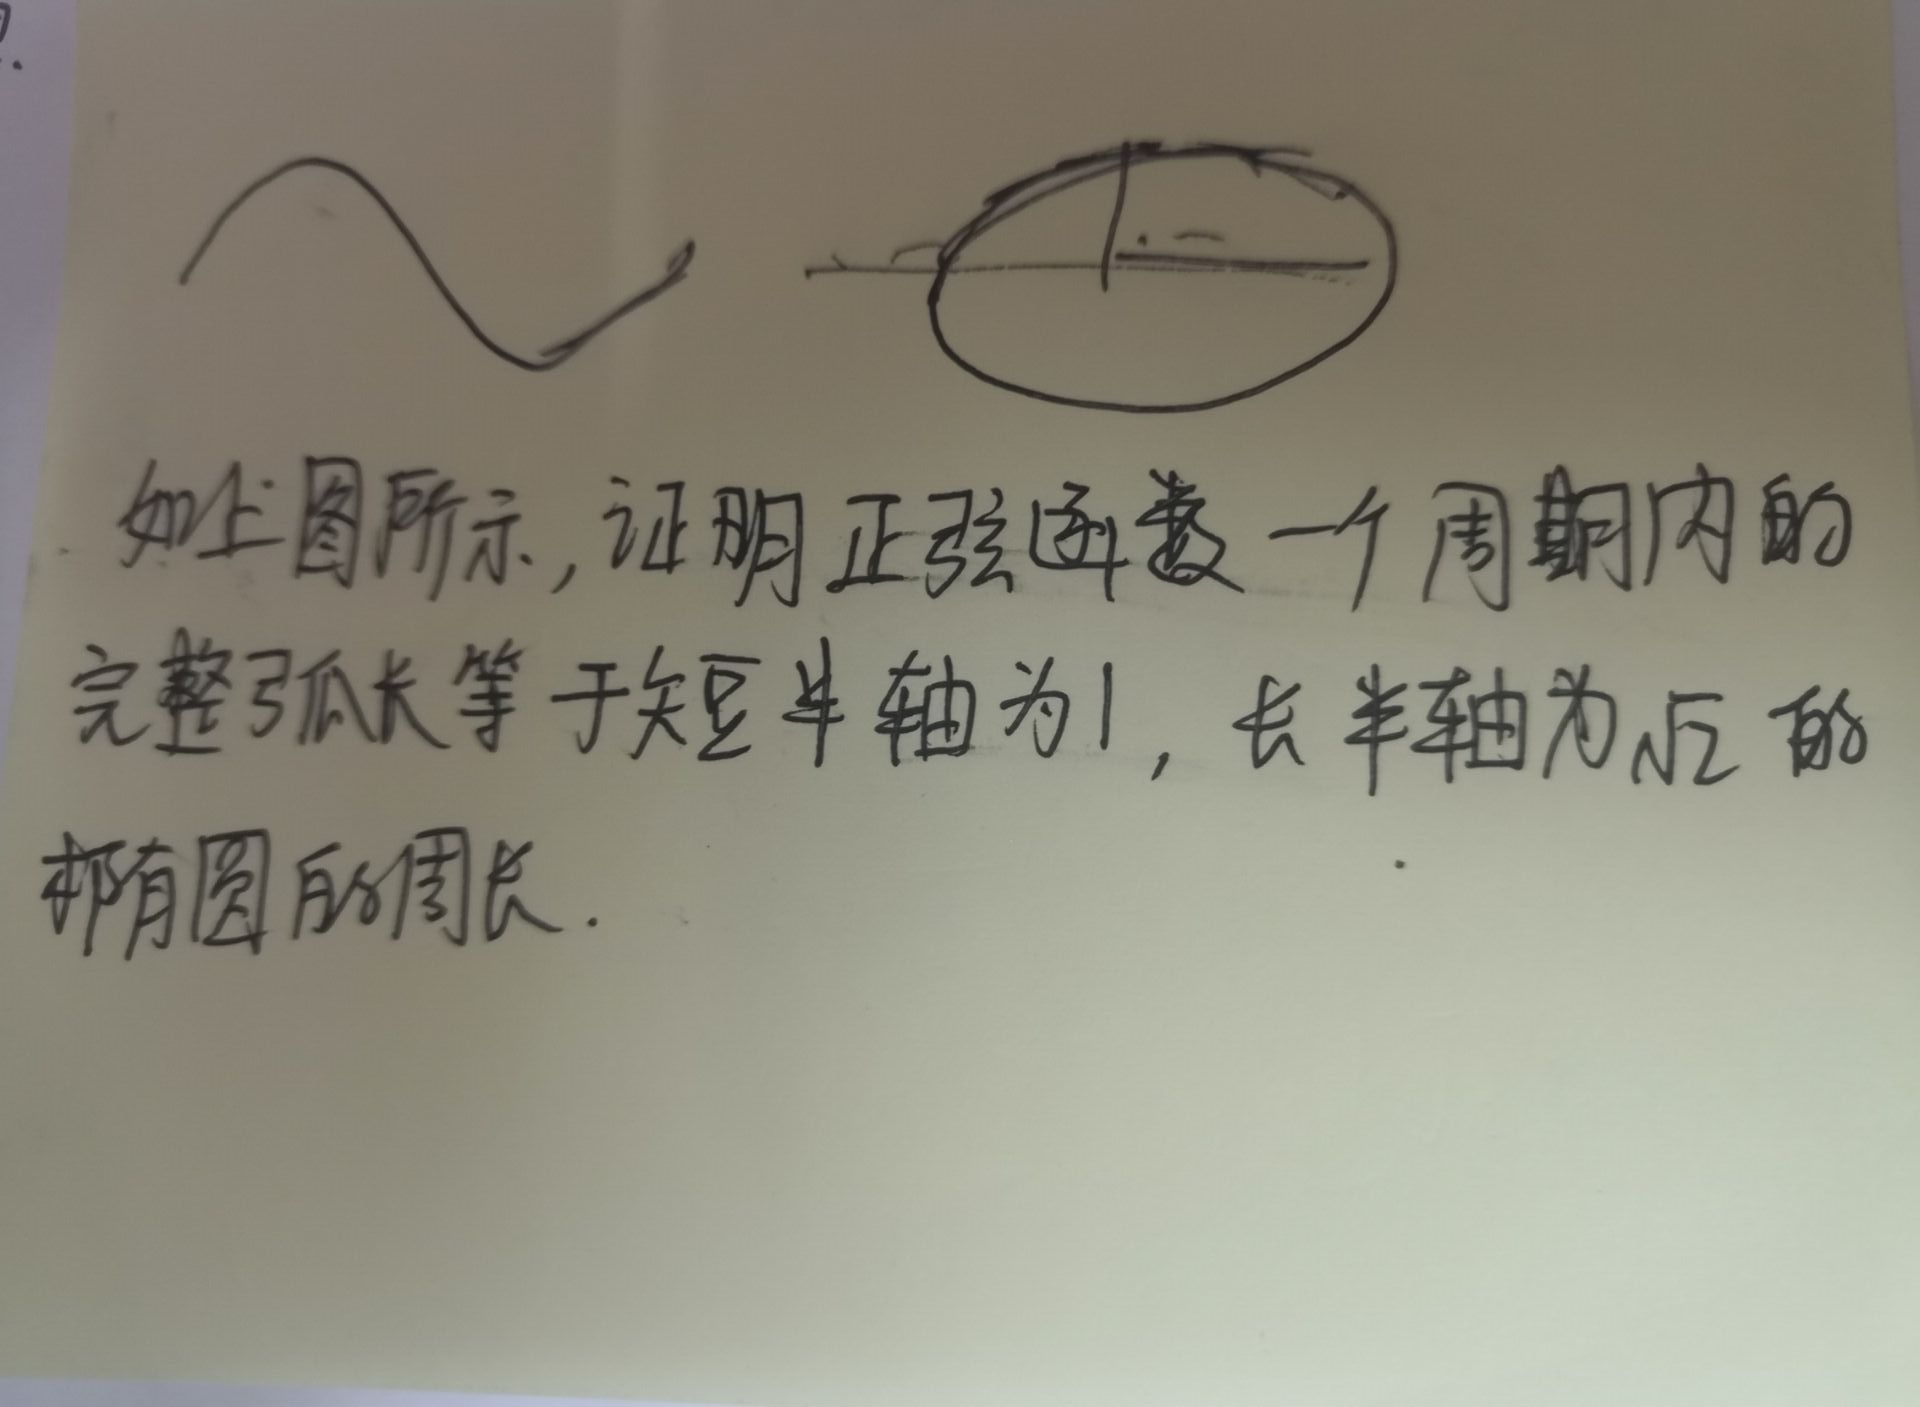 如上图所示,证明正弦函数一个周期内的
完整弧长等于短半轴为1,长半轴为√2的
椭圆的周长.